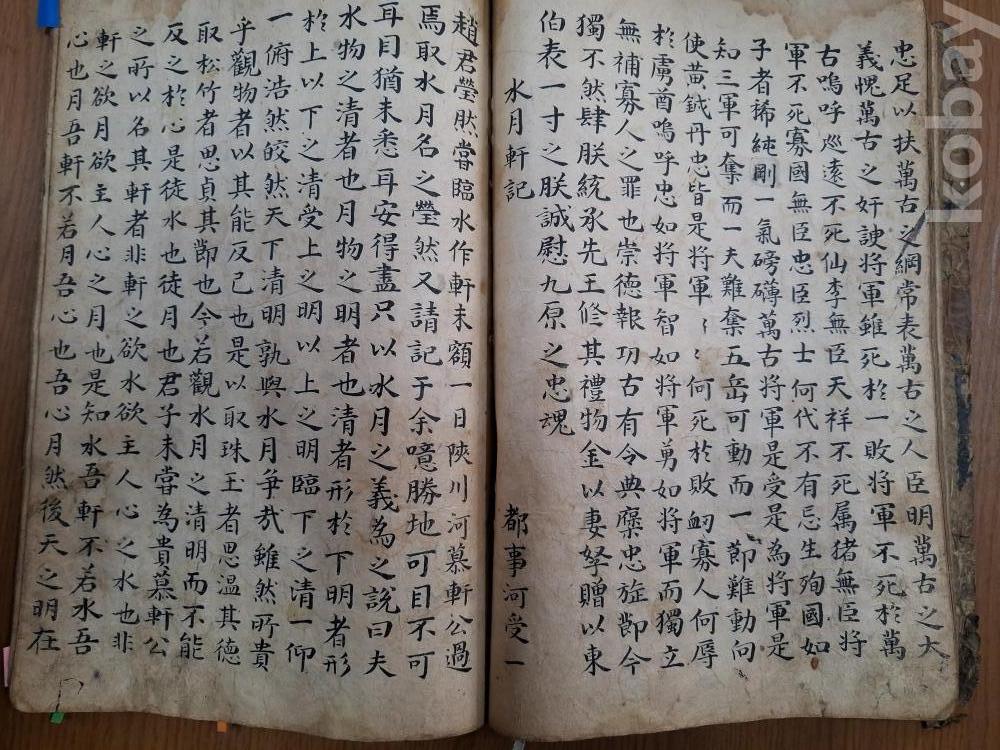 忠足以扶萬古之綱常表萬古之人臣明萬古之大
義愧萬古之奸諛將軍雖死於一敗將軍不死於萬
古嗚呼巡遠不死仙李無臣天祥不死属猪無臣將
軍不死寡國無臣忠臣烈士何代不有忘生殉國如
子者稀純剛一氣磅礴萬古將軍是受是為將軍是
知三軍可奪而一夫難奪五岳可動而一節難動向
使黃鉞丹忠皆是將軍〻〻何死於敗衂寡人何辱
於虜酋嗚呼忠如將軍智如將軍勇如將軍而獨立
無補寡人之罪也崇德報功古有令典褒忠旋節今
獨不然肆朕統承先王修其禮物金以妻孥贈以東
伯表一寸之朕誠慰九原之忠魂
水月軒記
都事河受一
趙君瑩然當臨水作軒未額一日陜川河慕軒公過
焉取水月名之瑩然又請記于余噫勝地可目不可
耳目猶未悉耳安得盡只以水月之義為之說曰夫
水物之清者也月物之明者也清者形於下明者形
於上以下之清受上之明以上之明臨下之清一仰
一俯浩然皎然天下清明孰與水月爭哉雖然所貴
乎觀物者以其能反己也是以取珠玉者思温其德
取松竹者思貞其節也今若觀水月之清明而不能
反之於心是徒水也徒月也君子未嘗為貴慕軒公
之所以名其軒者非軒之欲水欲主人心之水也非
軒之欲月欲主人心之月也是知水吾軒不若水吾
心也月吾軒不若月吾心也吾心月然後天之明在
kobay